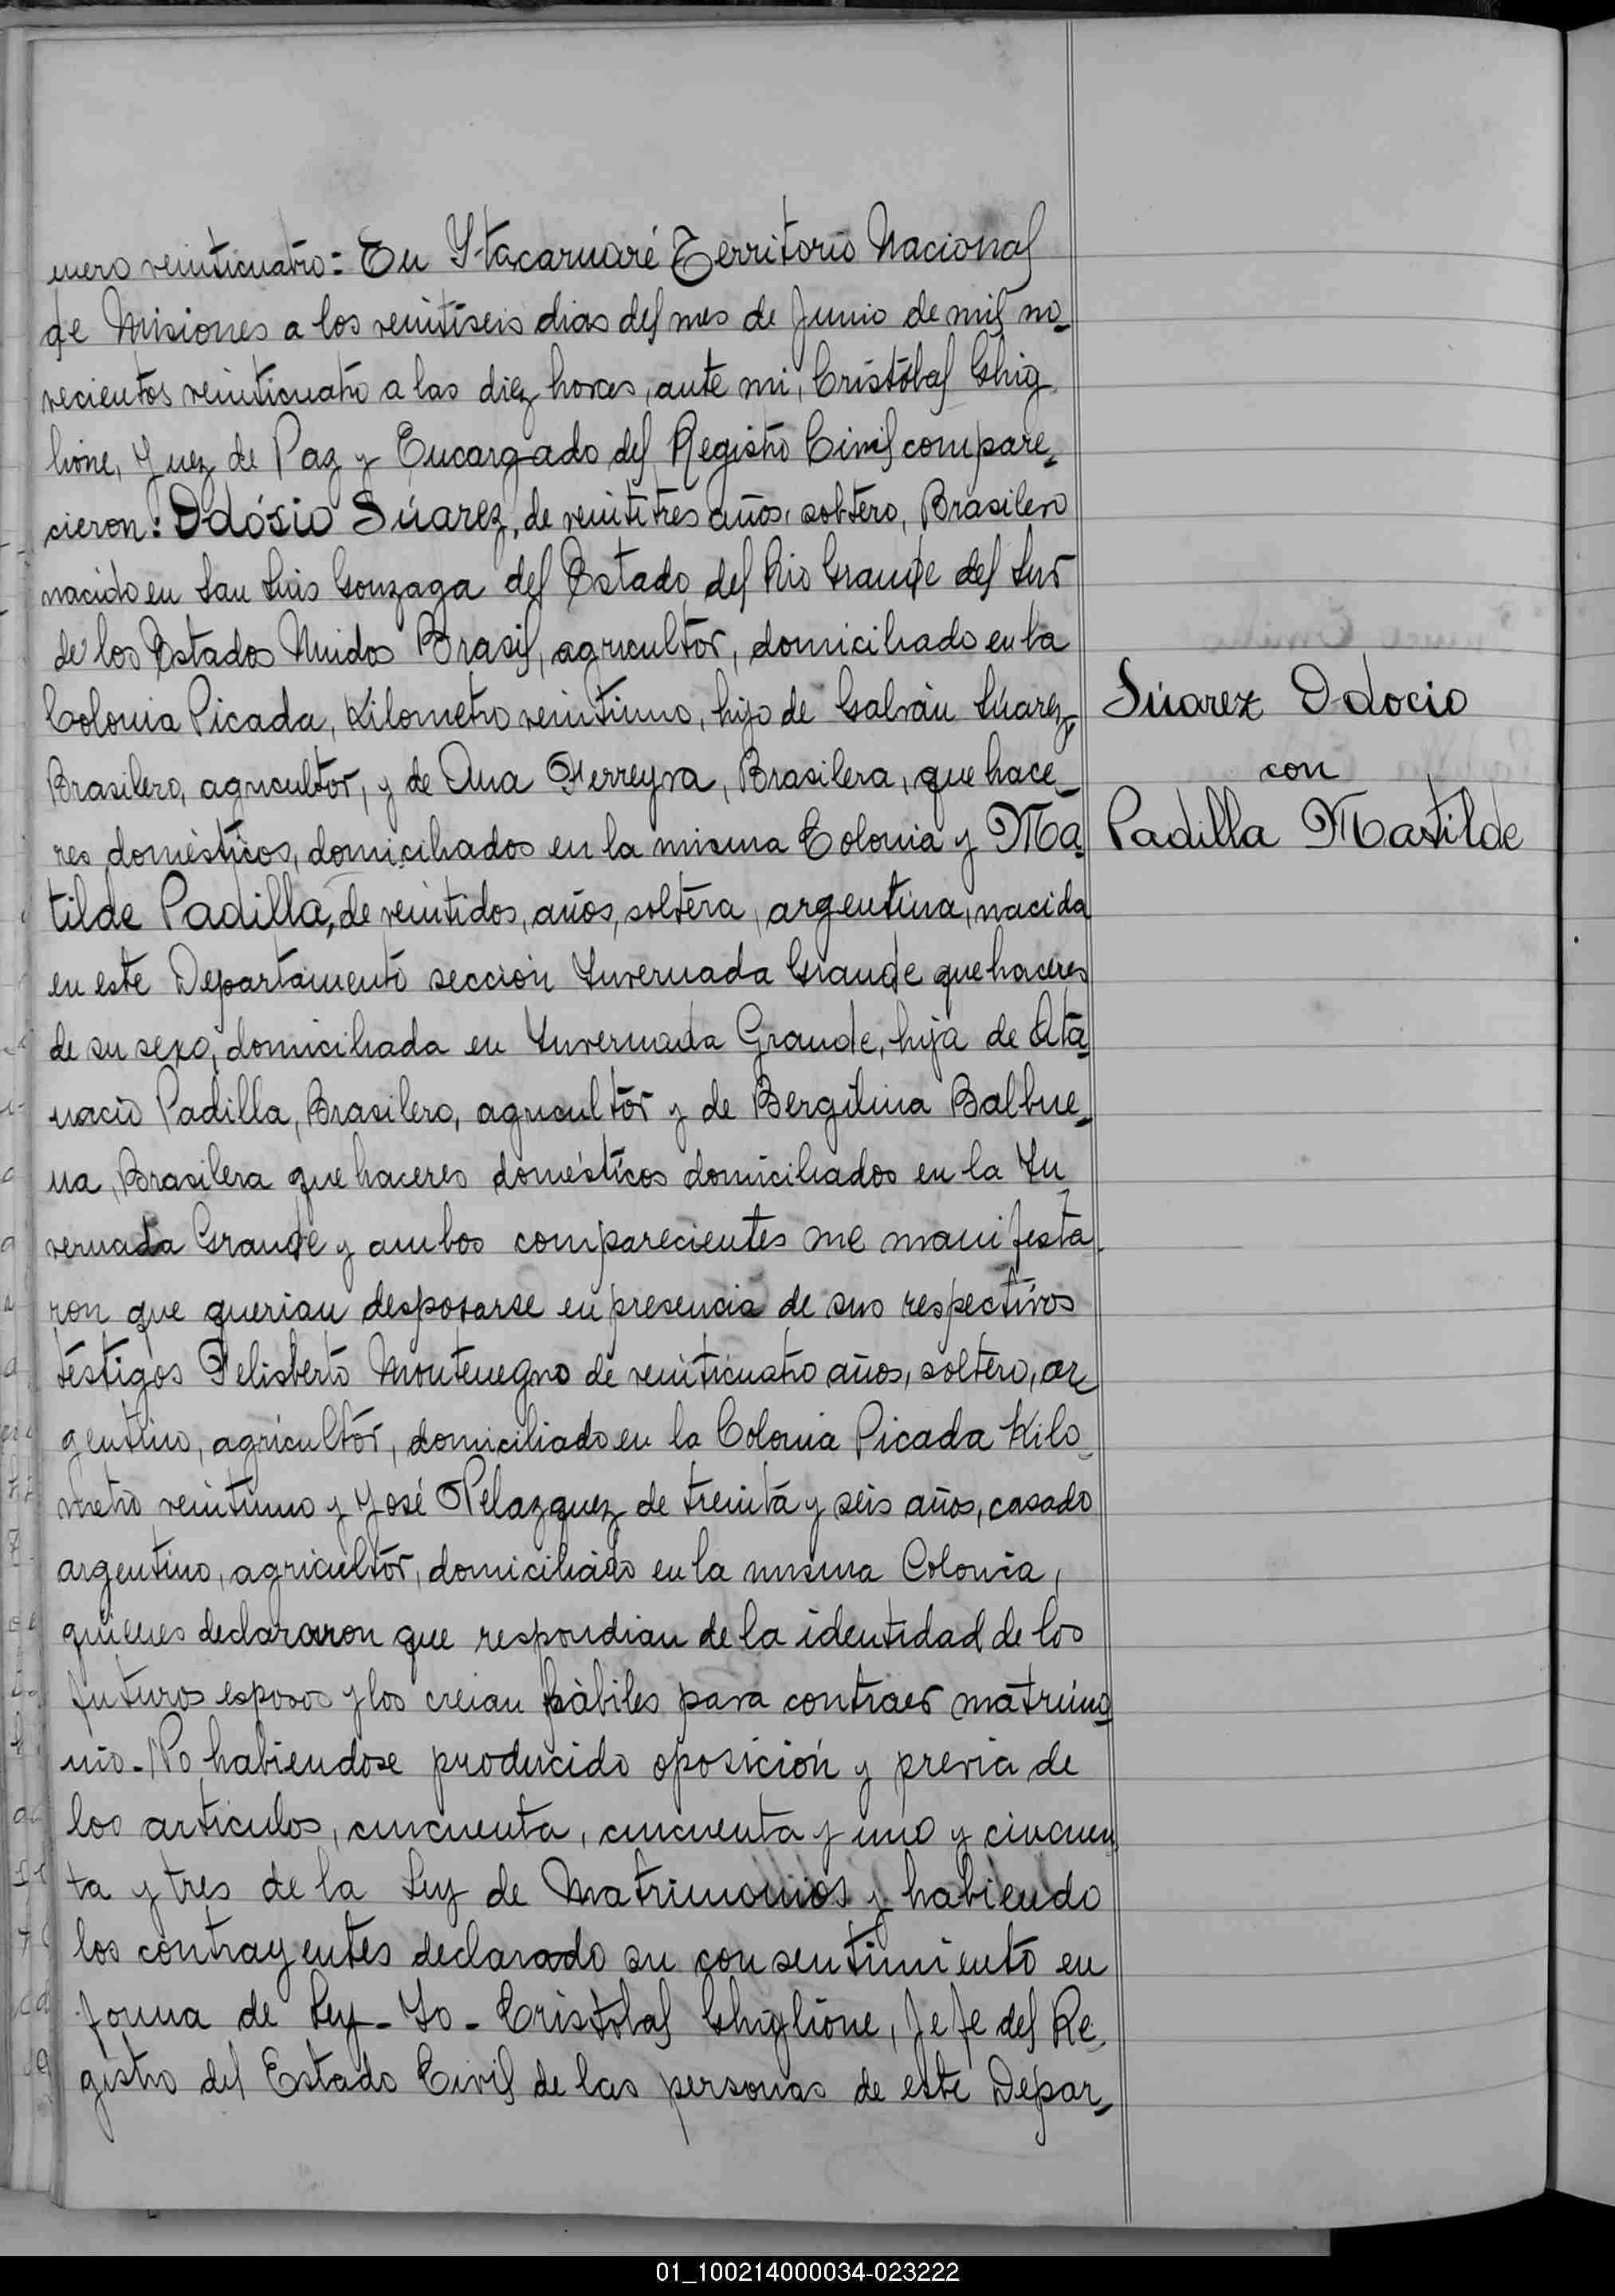 mero veinticuatro: En Ytacaruaré Territorio Nacional
de Misiones a los veintiseis dias del mes de Junio de mil no-
vecientos veinticuatro a las diez horas, ante mi, Cristóbal Ghig-
lione, Juez de Paz y Encargado del Registro Civil compare-
cieron: Odósio Súarez, de veintitres años, soltero, Brasilero
nacido en San Luis Gonzaga del Estado del Rio Grande del Sur
de los Estados Unidos Brasil, agricultor, domiciliado en la
Colonia Picada, Kilometro veintiuno, hijo de Galván Súarez,
Brasilero, agricultor, y de Ana Ferreyra, Brasilera, que hace-
res domésticos, domiciliados en la misma Colonia y Ma-
tilde Padilla, de veintidos, años, soltera, argentina, nacida
en este Departamento sección Invernada Grande que haceres
de su sexo, domiciliada en Invernada Grande, hija de Ata-
nacio Padilla, Brasilero, agricultor y de Bergilina Balbue-
na, Brasilera que haceres domésticos domiciliados en la In-
vernada Grande y ambos comparecientes me manifesta-
ron que querian desposarse en presencia de sus respectivos
testigos Felisberto Montenegro de veinticuatro años, soltero, ar-
gentino, agricultor, domiciliado en la Colonia Picada Kilo-
metro veintiuno y José Pelazquez de treinta y seis años, casado
argentino, agricultor, domiciliado en la misma Colonia,
quienes declararon que respondian de la identidad de los
futuros esposos y los creian hábiles para contraer matrimo-
nio. No habiendose producido oposición y previa de
los articulos, cincuenta, cincuenta y uno y cincuen-
ta y tres de la Ley de Matrimonios y habiendo
los contrayentes declarado su consentimiento en
forma de Ley - Yo - Cristóbal Ghiglione, Jefe del Re-
gistro del Estado Civil de las personas de este Depar-
Súarez Odocio
con
Padilla Matilde
01_100214000034-023222